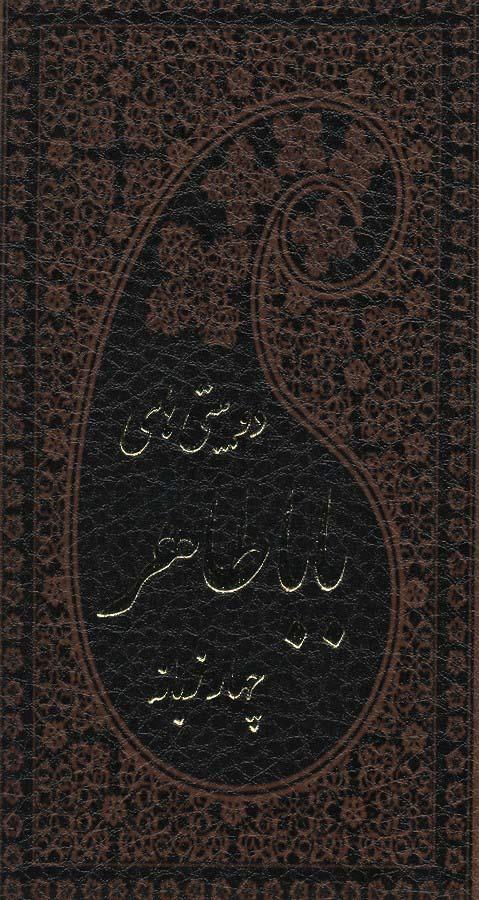 دوبیتی‌های
باباطاهر
چهار زبانه